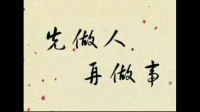 先做人
再做事。